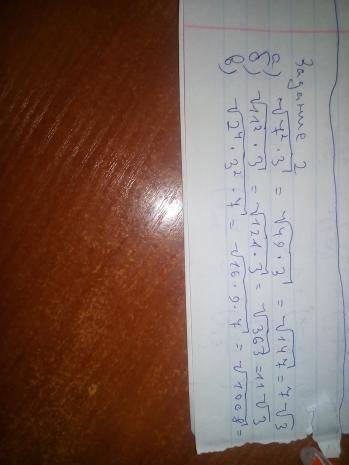 Задание 2
а) √7²·3 = √49·3 = √147 = 7√3
б) √11²·3 = √121·3 = √363 = 11√3
в) √2⁴·3²·7 = √16·9·7 = √1008 =